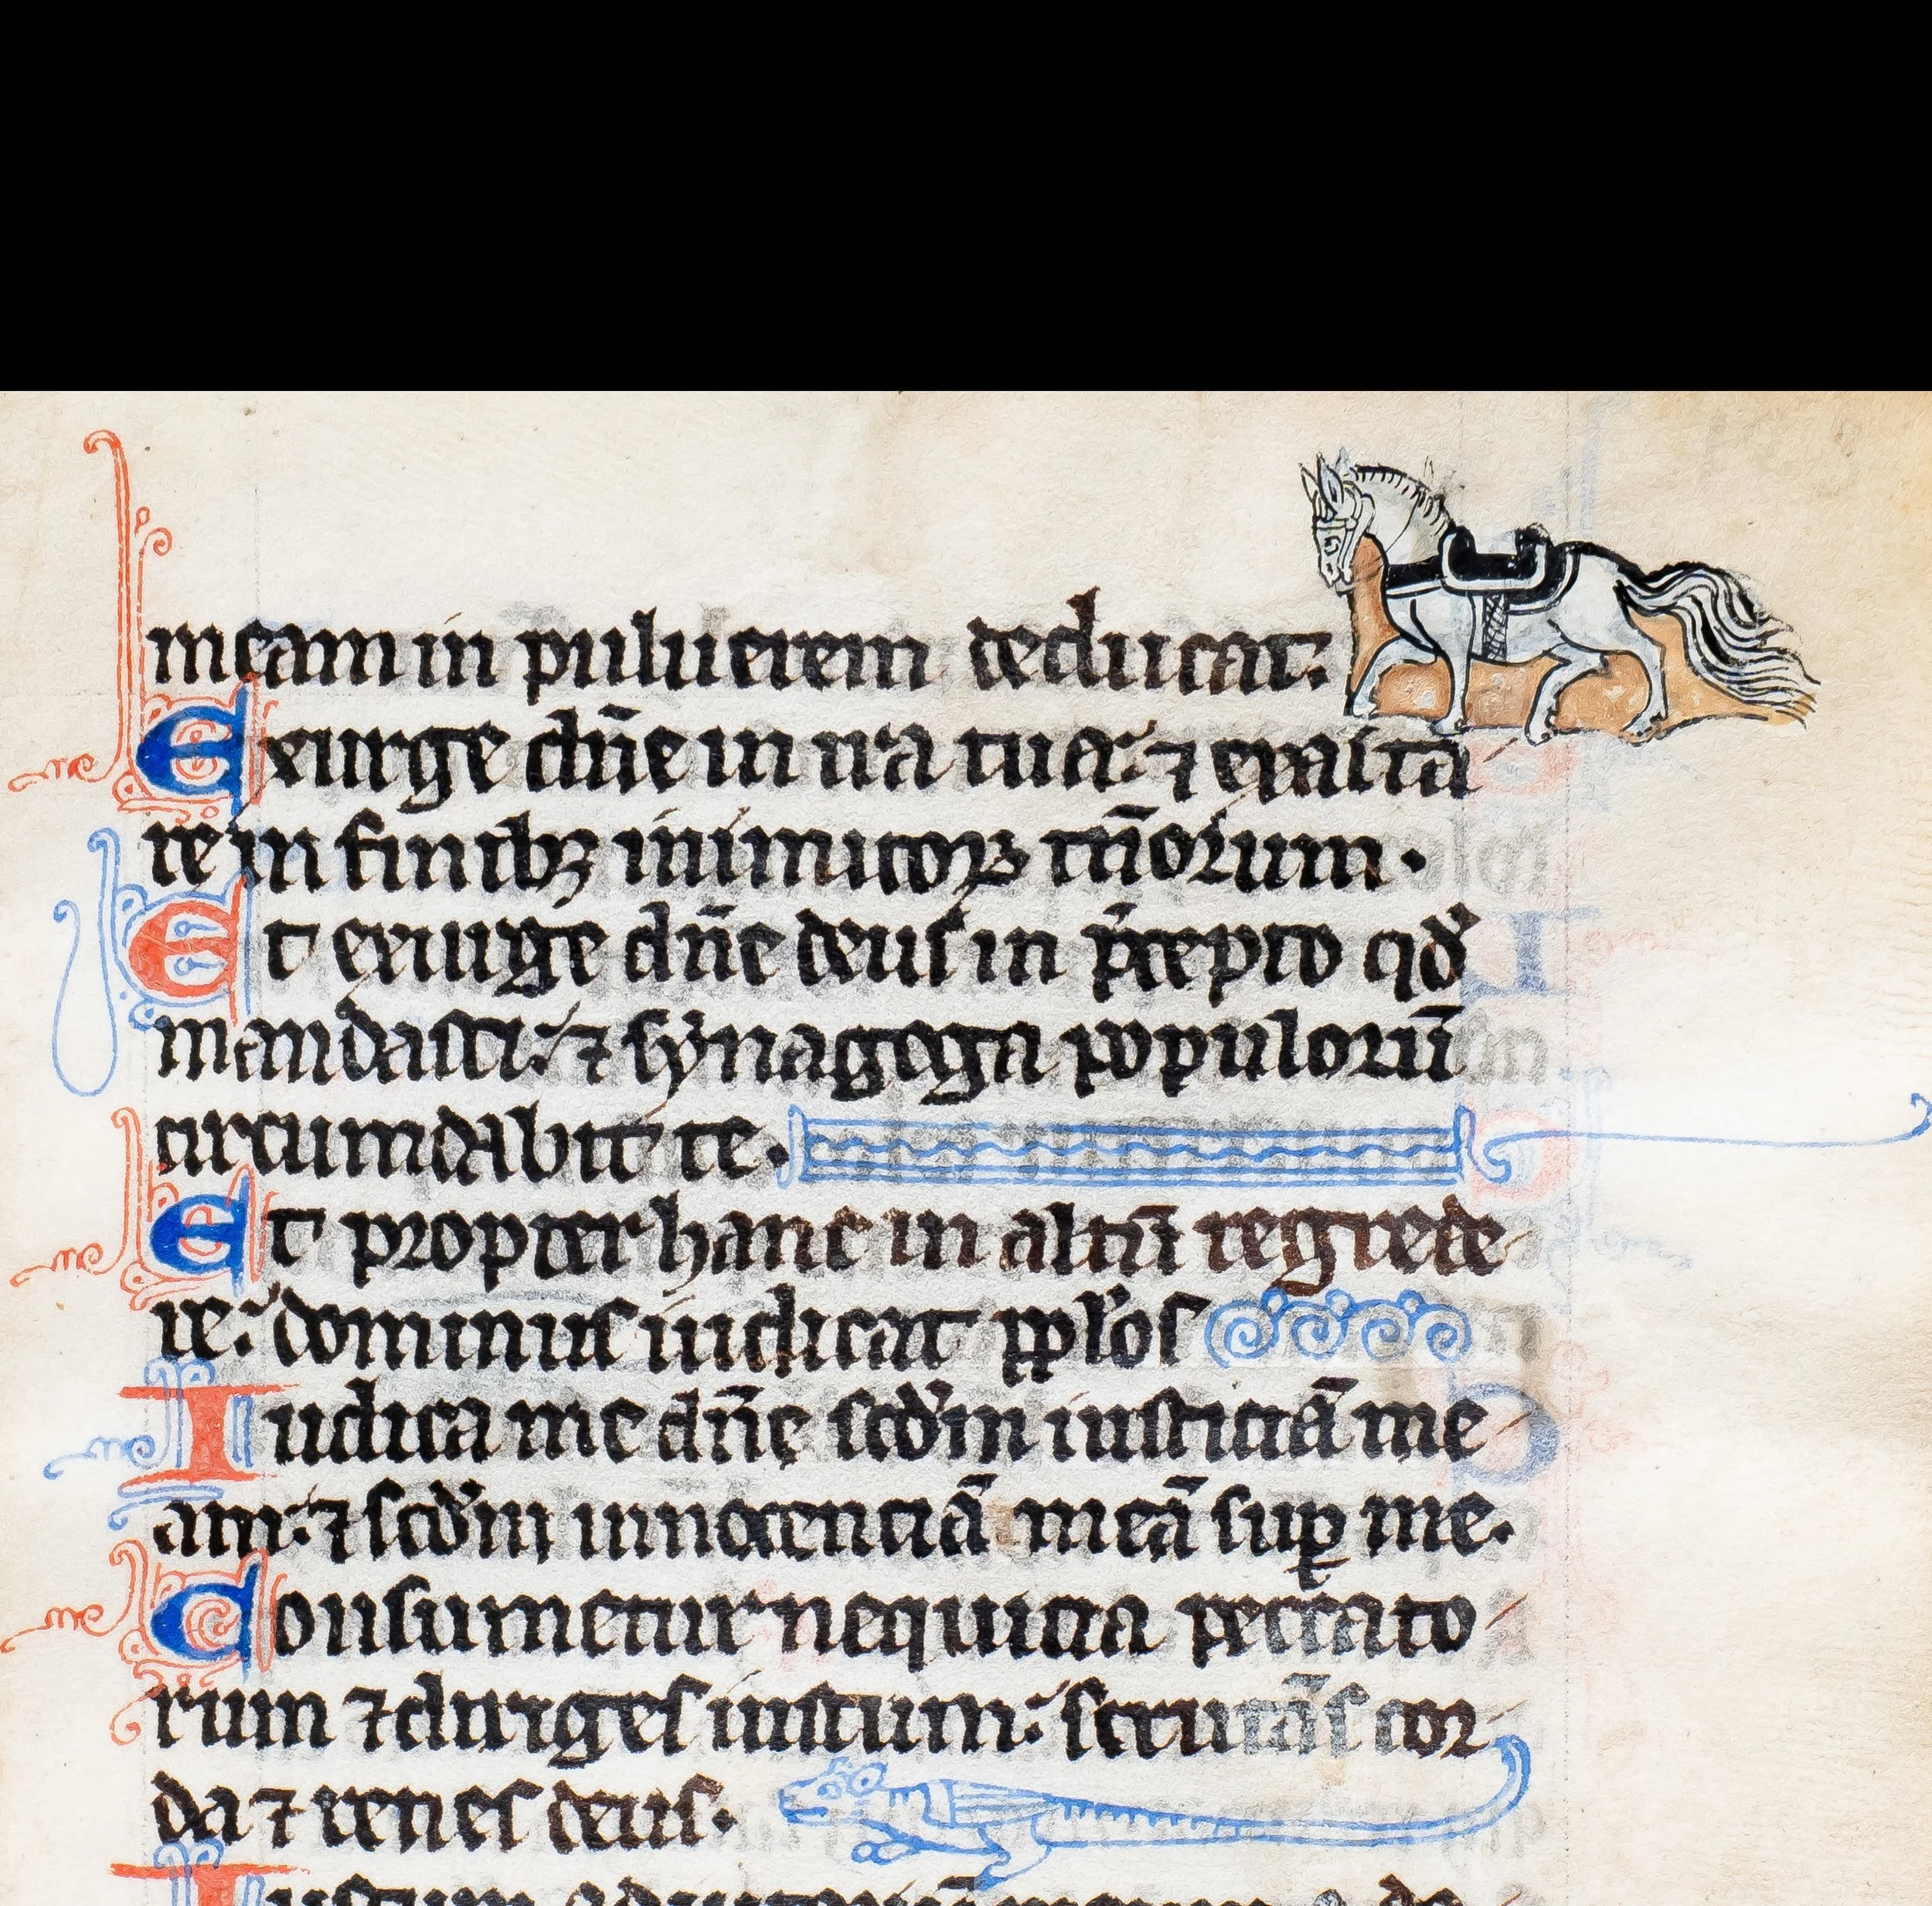 meam in puluerem deducat:
Exurge dn̄e in ira tua: ⁊ exalta
re in finibꝫ inimicoꝝ tuorum.
Et exurge dn̄e deus in p̄cepto qd̓
mandasti: ⁊ synagoga populorū
circumdabit te.
Et propter hanc in altū regrede
re: dominus iudicat pplos
Iudica me dn̄e scd̓m iusticiā me
am: ⁊ scd̓m innocenciā meā suꝑ me.
Consumetur nequicia peccato
rum ⁊ diriges iustum: scrutās cor
da ⁊ renes deus.
Iustum